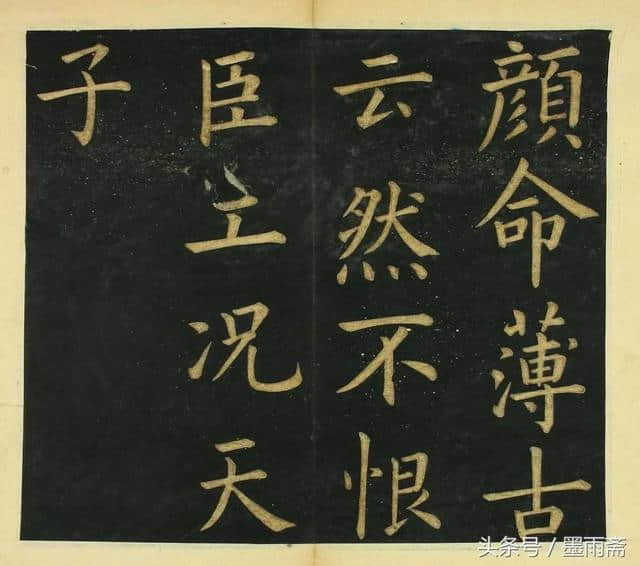 顔命薄古
云然不恨
臣工况天
子
头条号／墨雨斋